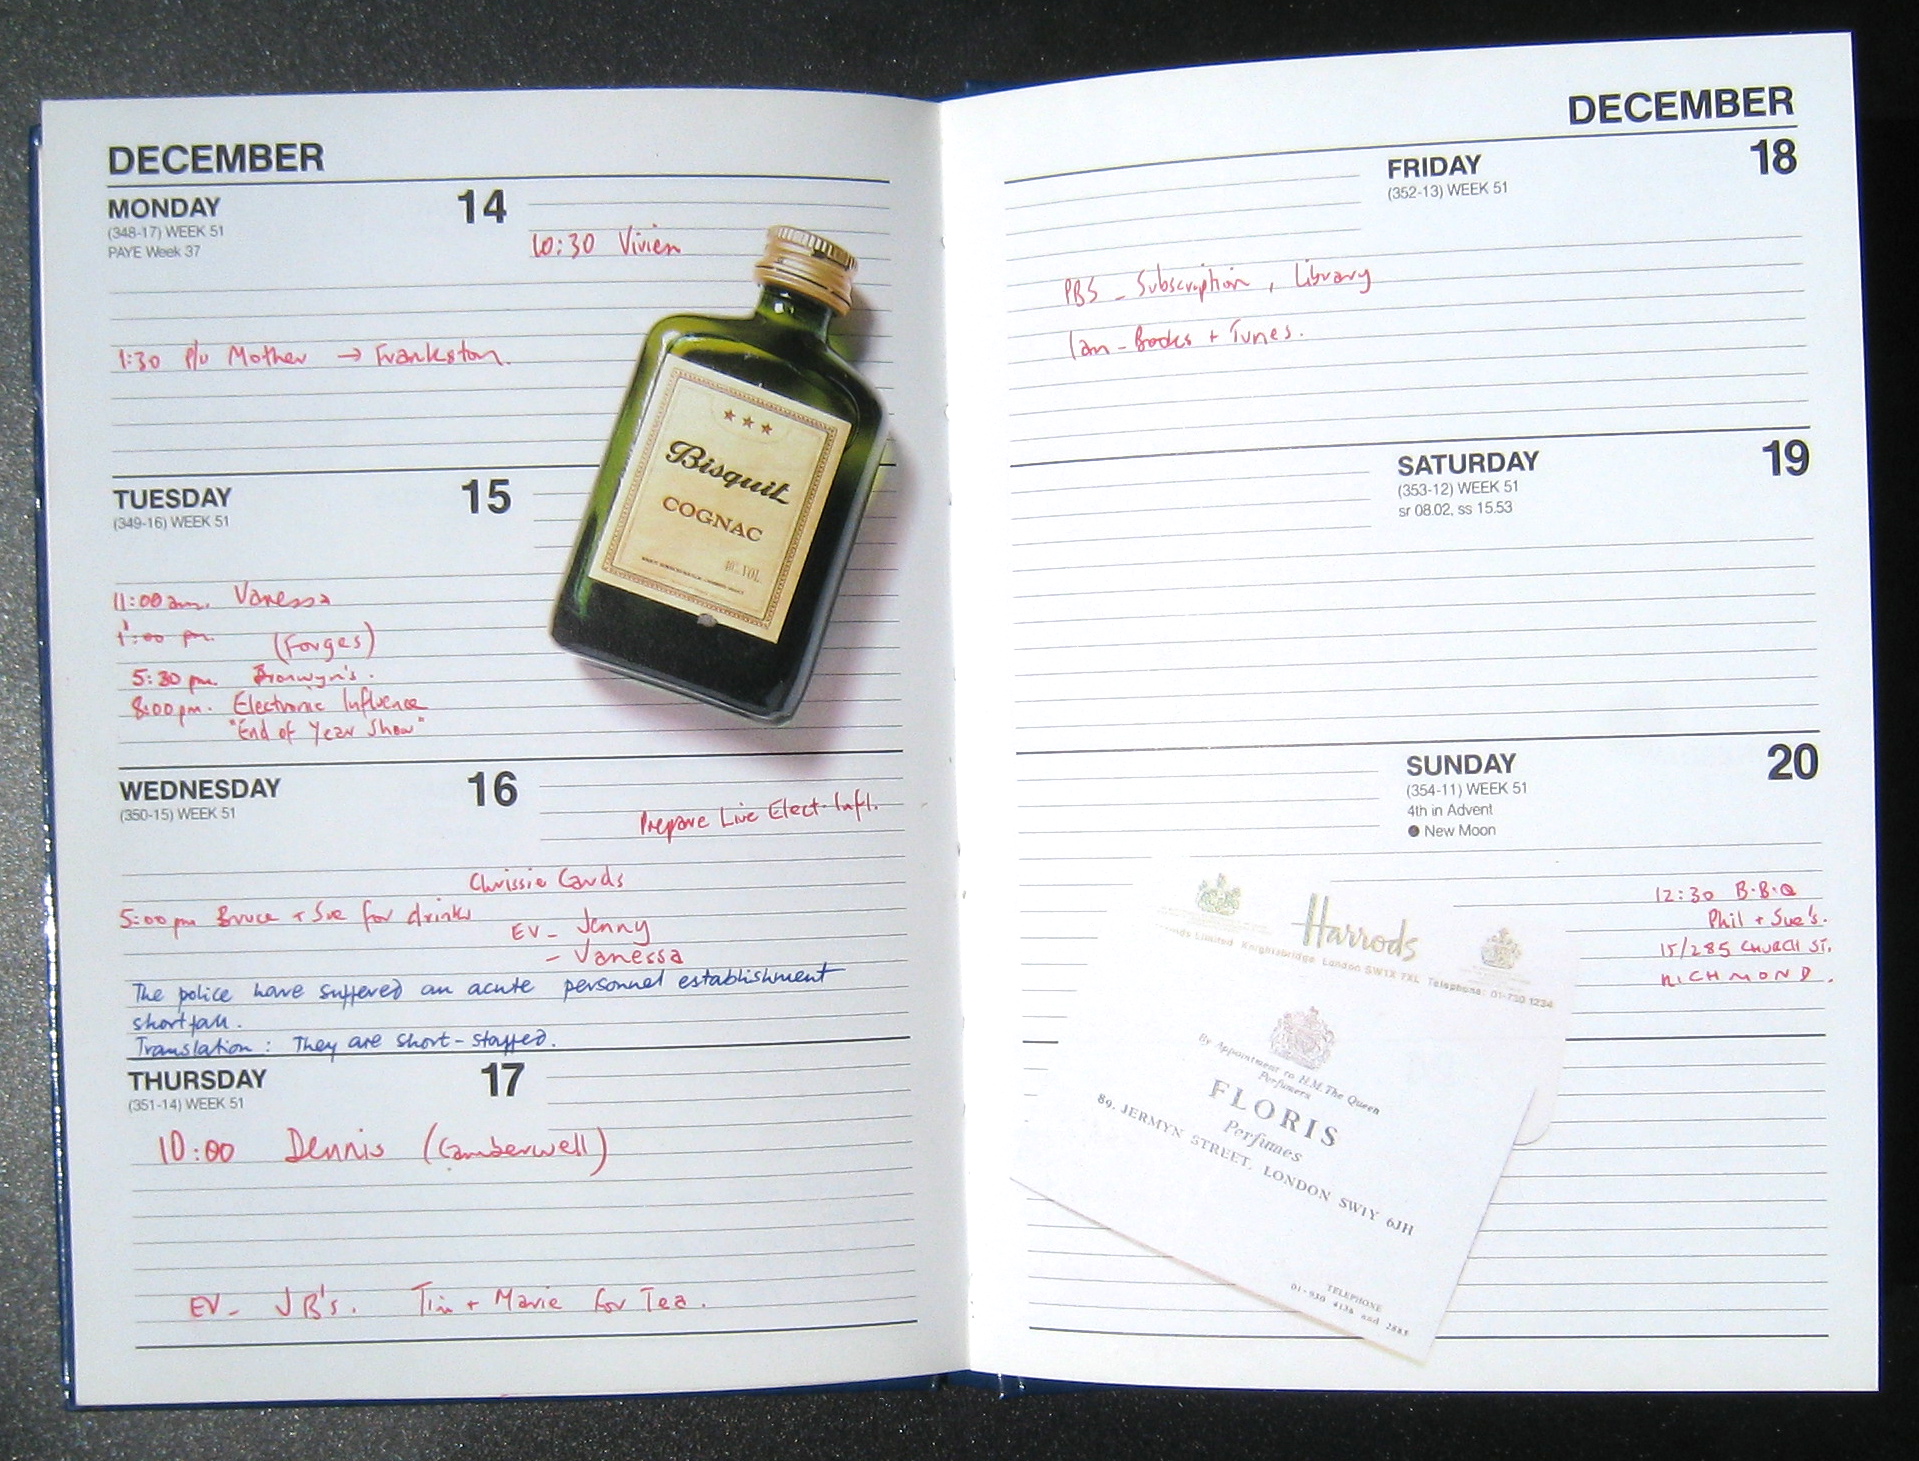 DECEMBER
MONDAY 14
(348-17) WEEK 51
PAYE Week 37
10:30 Vivien
1:30 P/U Mother → Frankston.
TUESDAY 15
(349-16) WEEK 51
11:00 am. Vanessa
1:00 pm. (Forges)
5:30 pm. Bronwyn's.
8:00 pm. Electronic Influence
"End of Year Show"
★ ★ ★
Bisquit
COGNAC
40% VOL
WEDNESDAY 16
(350-15) WEEK 51
Prepare Live Elect. Infl.
Chrissie Cards
5:00 pm Bruce + Sue for drinks
EV - Jenny
- Vanessa
The police have suffered an acute personnel establishment
shortfall.
Translation: They are short-staffed.
THURSDAY 17
(351-14) WEEK 51
10:00 Dennis (Camberwell)
EV - JB's. Tim + Marie for Tea.
DECEMBER
FRIDAY 18
(352-13) WEEK 51
PBS - Subscription, Library
Ian - Books + Tunes.
SATURDAY 19
(353-12) WEEK 51
sr 08.02, ss 15.53
SUNDAY 20
(354-11) WEEK 51
4th in Advent
● New Moon
12:30 B.B.Q
Phil + Sue's.
15/285 CHURCH ST.
RICHMOND.
Harrods
Limited Knightsbridge London SW1X 7XL Telephone: 01-730 1234
By Appointment to H.M. The Queen
Perfumers
FLORIS
Perfumes
89, JERMYN STREET, LONDON SW1Y 6JH
TELEPHONE
01-930 4136 and 2885